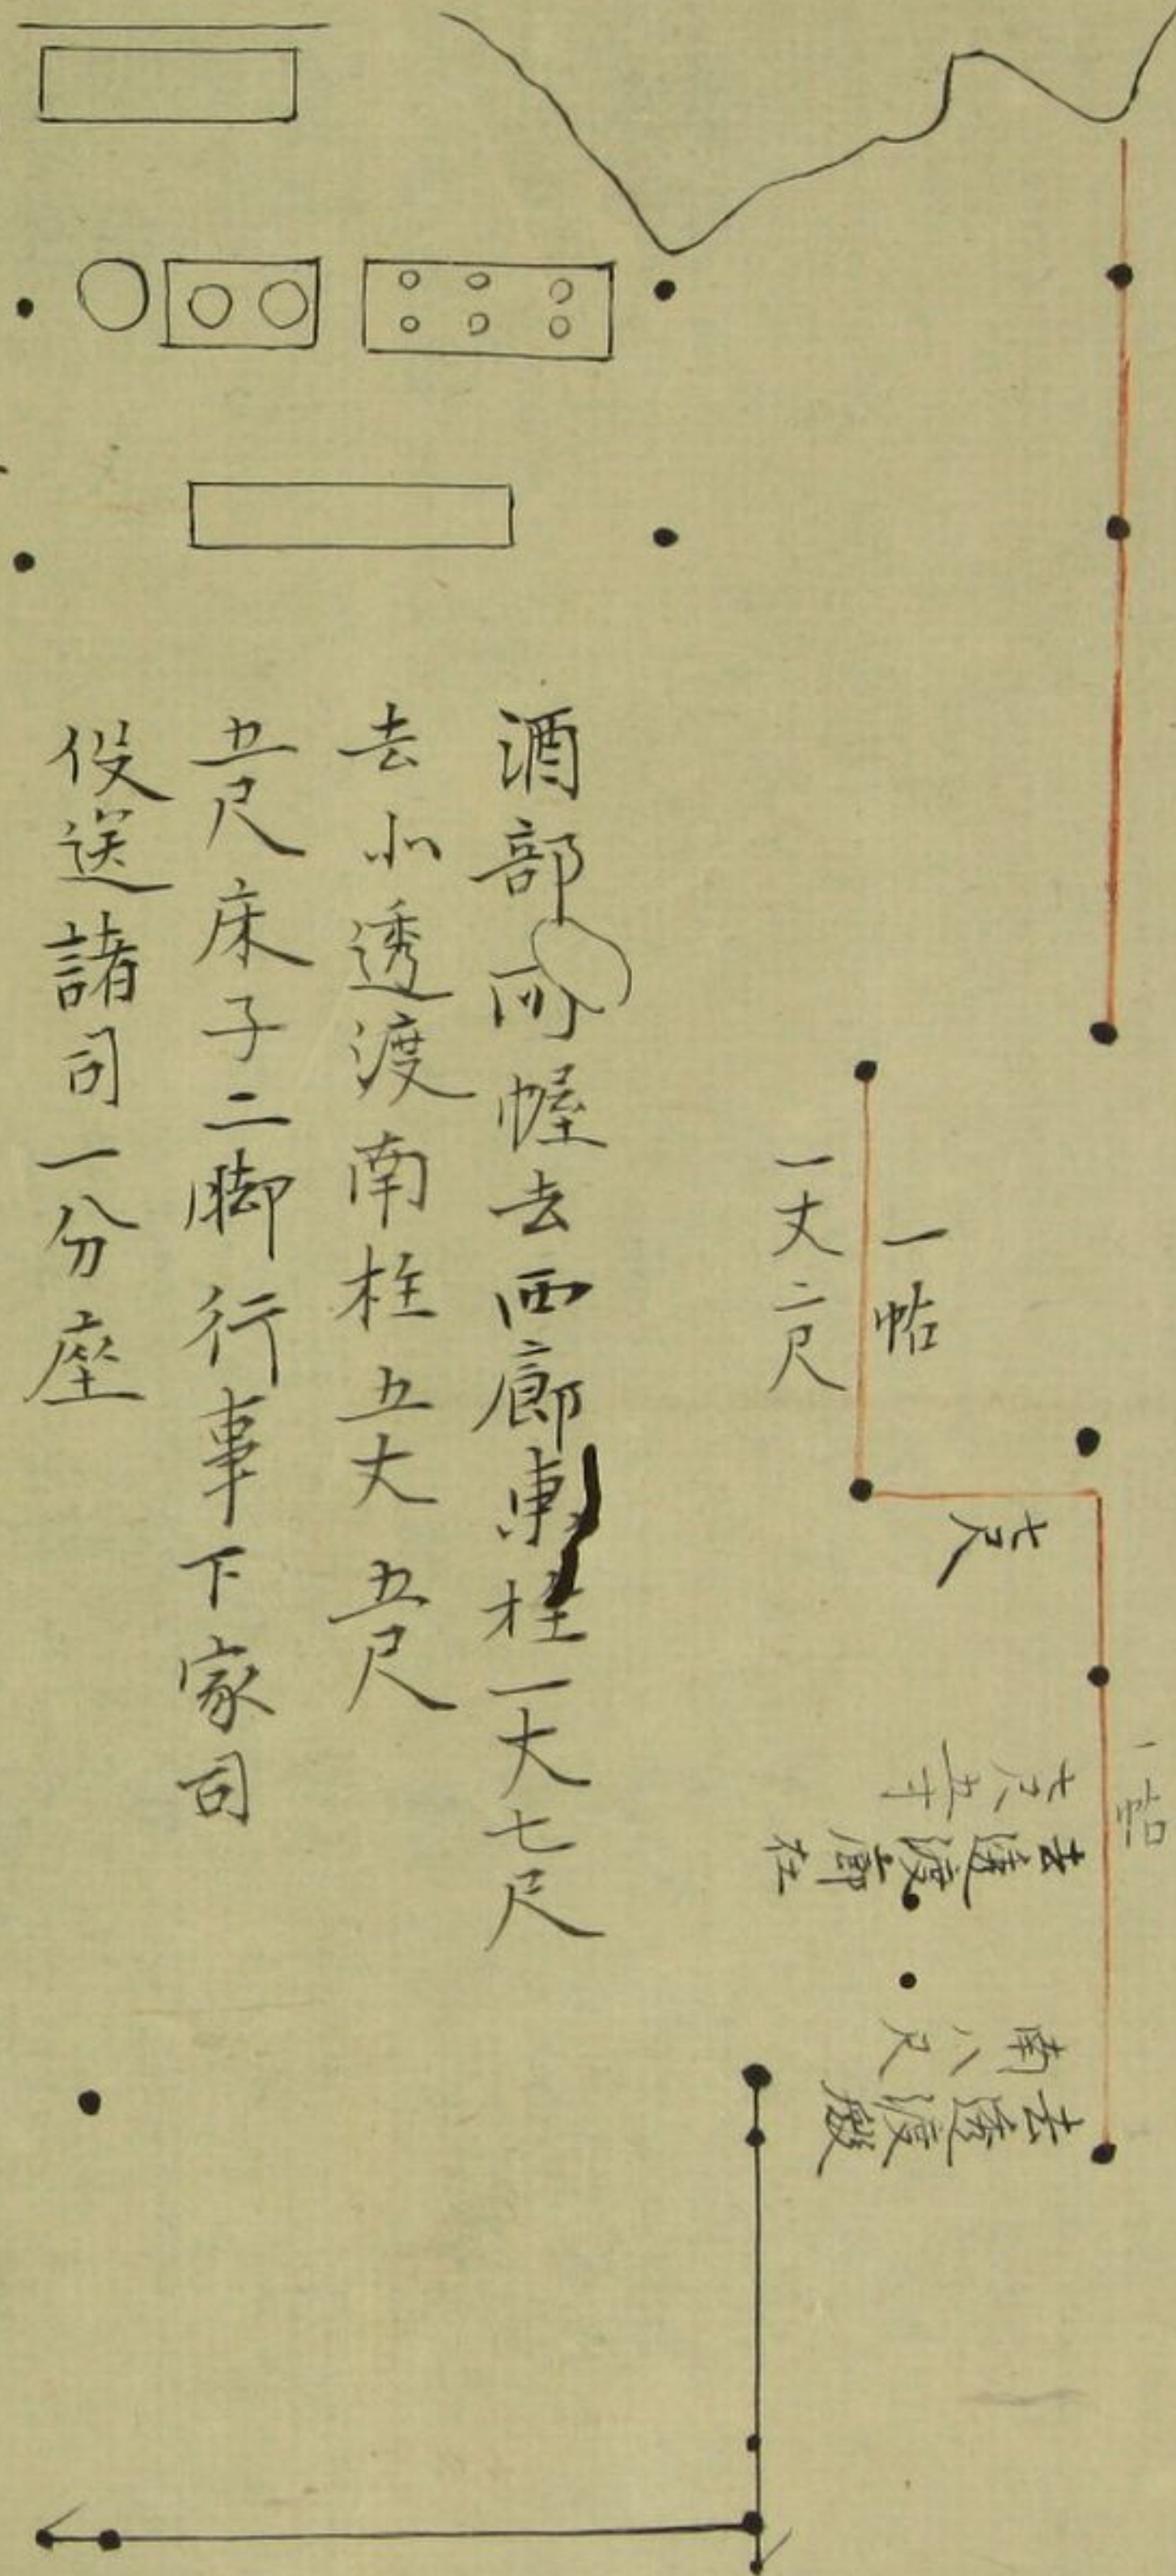 一帖
一丈二尺
七尺
七尺五寸
去透渡廊柱
南八尺
去透渡殿
酒部所幄去西廊東柱一丈七尺
去北透渡南柱五丈五尺
五尺床子二脚行事下家司
役送諸司一分座